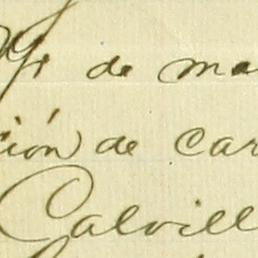 de ma
ción de car
Calvill